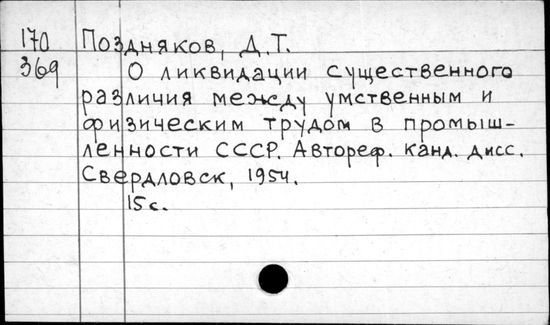 170 Поздняков, Д.Т.
369 О ликвидации существенного
различия между умственным и
физическим трудом в промыш-
ленности СССР. Автореф. канд. дисс.
Свердловск, 1954.
15с.